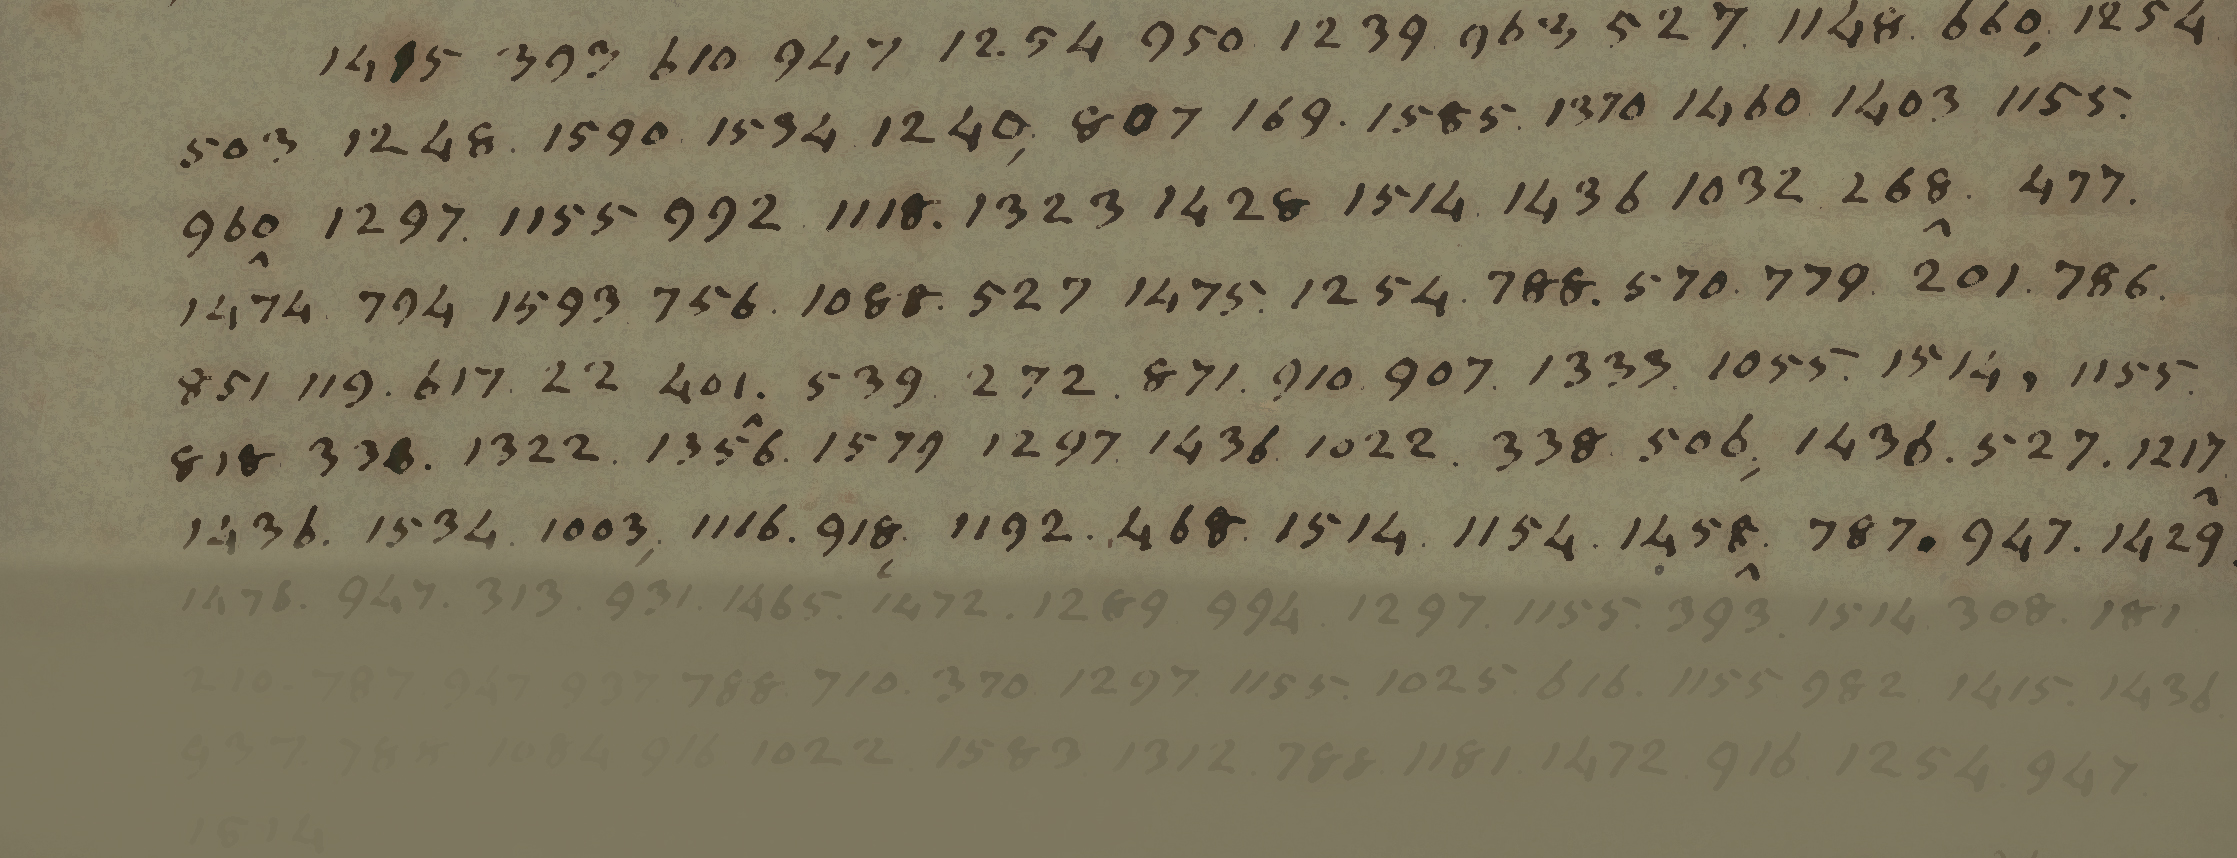 1495 393 610 947 12.54 950 1239 963 527. 1148. 660, 1254
503 1248. 1590. 1534 1240, 807 169. 1585. 1370 1460 1403 1155.
960 1297. 1155 992 1118. 1323 1428 1514. 1436 1032 268. 477.
1474 794 1593 756. 1088. 527 1475. 1254. 788. 570. 779. 201. 786.
851 119. 617. 22 401. 539. 272. 871. 910. 907. 1333. 1055. 1514, 1155.
818 338. 1322. 1356. 1579 1297. 1436 1022. 338 506, 1436. 527. 1217.
1436. 1534. 1003, 1116. 918. 1192. 468. 1514. 1154. 1458. 787. 947. 1429.
1478. 947. 313. 931. 1465. 1472. 1289 994. 1297. 1155. 393. 1514 308. 181
210. 787 947 937. 788 710. 370 1297. 1155. 1025. 616. 1155 982 1415. 1436
937. 788 1084 916 1022 1583 1312. 788. 1181. 1472. 916. 1254. 947
1514